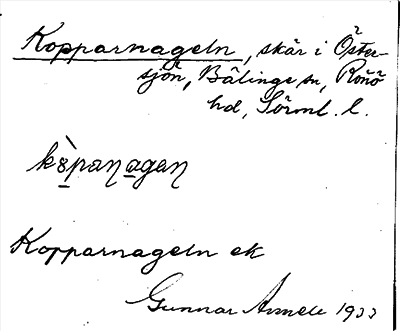 Kopparnageln, skär i Öster-
sjön, Bälinge sn, Rönö
hd, Sörml. l.
Kopparnageln ek
Gunnar 1933